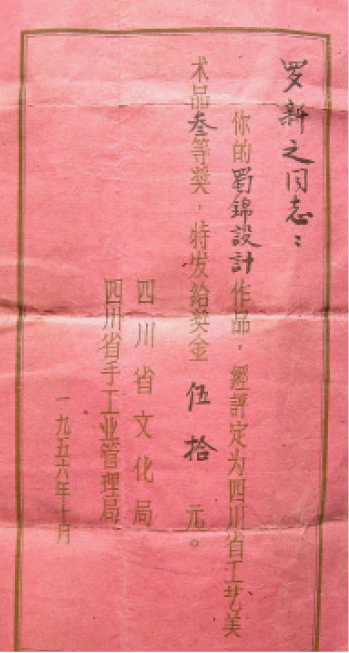 罗新之同志：
你的蜀錦設計作品，經評定为四川省工艺美
术品叁等奖，特发給奖金伍拾元。
四川省文化局
四川省手工业管理局
一九五六年十月